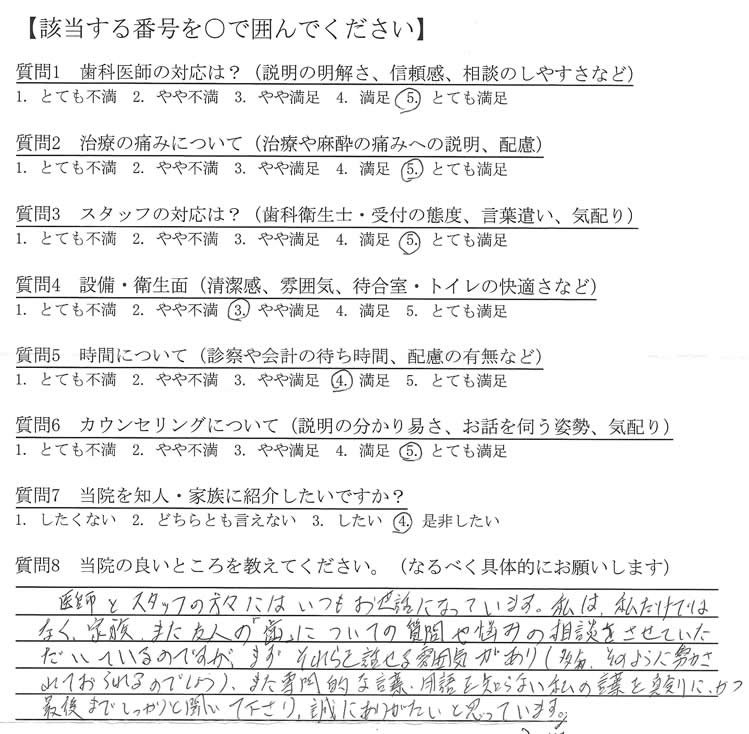 【該当する番号を○で囲んでください】
質問1 歯科医師の対応は?(説明の明解さ、信頼感、相談のしやすさなど)
1. とても不満 2. やや不満 3. やや満足 4. 満足 5. とても満足
質問2 治療の痛みについて(治療や麻酔の痛みへの説明、配慮)
1. とても不満 2. やや不満 3. やや満足 4. 満足 5. とても満足
質問3 スタッフの対応は?(歯科衛生士・受付の態度、言葉遣い、気配り)
1. とても不満 2. やや不満 3. やや満足 4. 満足 5. とても満足
質問4 設備・衛生面(清潔感、雰囲気、待合室・トイレの快適さなど)
1. とても不満 2. やや不満 3. やや満足 4. 満足 5. とても満足
質問5 時間について(診察や会計の待ち時間、配慮の有無など)
1. とても不満 2. やや不満 3. やや満足 4. 満足 5. とても満足
質問6 カウンセリングについて(説明の分かり易さ、お話を伺う姿勢、気配り)
1. とても不満 2. やや不満 3. やや満足 4. 満足 5. とても満足
質問7 当院を知人・家族に紹介したいですか?
1. したくない 2. どちらとも言えない 3. したい 4. 是非したい
質問8 当院の良いところを教えてください。(なるべく具体的にお願いします)
医師とスタッフの方々にはいつもお世話になっています。私は、私だけでは
なく、家族、また友人の「歯」についての質問や悩みの相談をさせていた
だいているのですが、まず それらを話せる雰囲気があり(多分、そのように努力さ
れておられるのでしょう)、また専門的な言葉、用語を知らない私の言葉を真剣に、かつ
最後までしっかりと聞いて下さり、誠にありがたいと思っています。